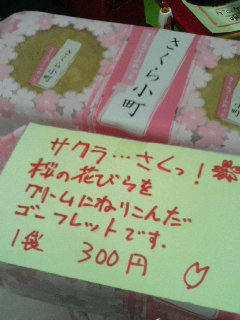 さくら小町
さくら小町
サクラ…さくっ!
桜の花びらを
クリームにねりこんだ
ゴーフレットです.
1袋 300円